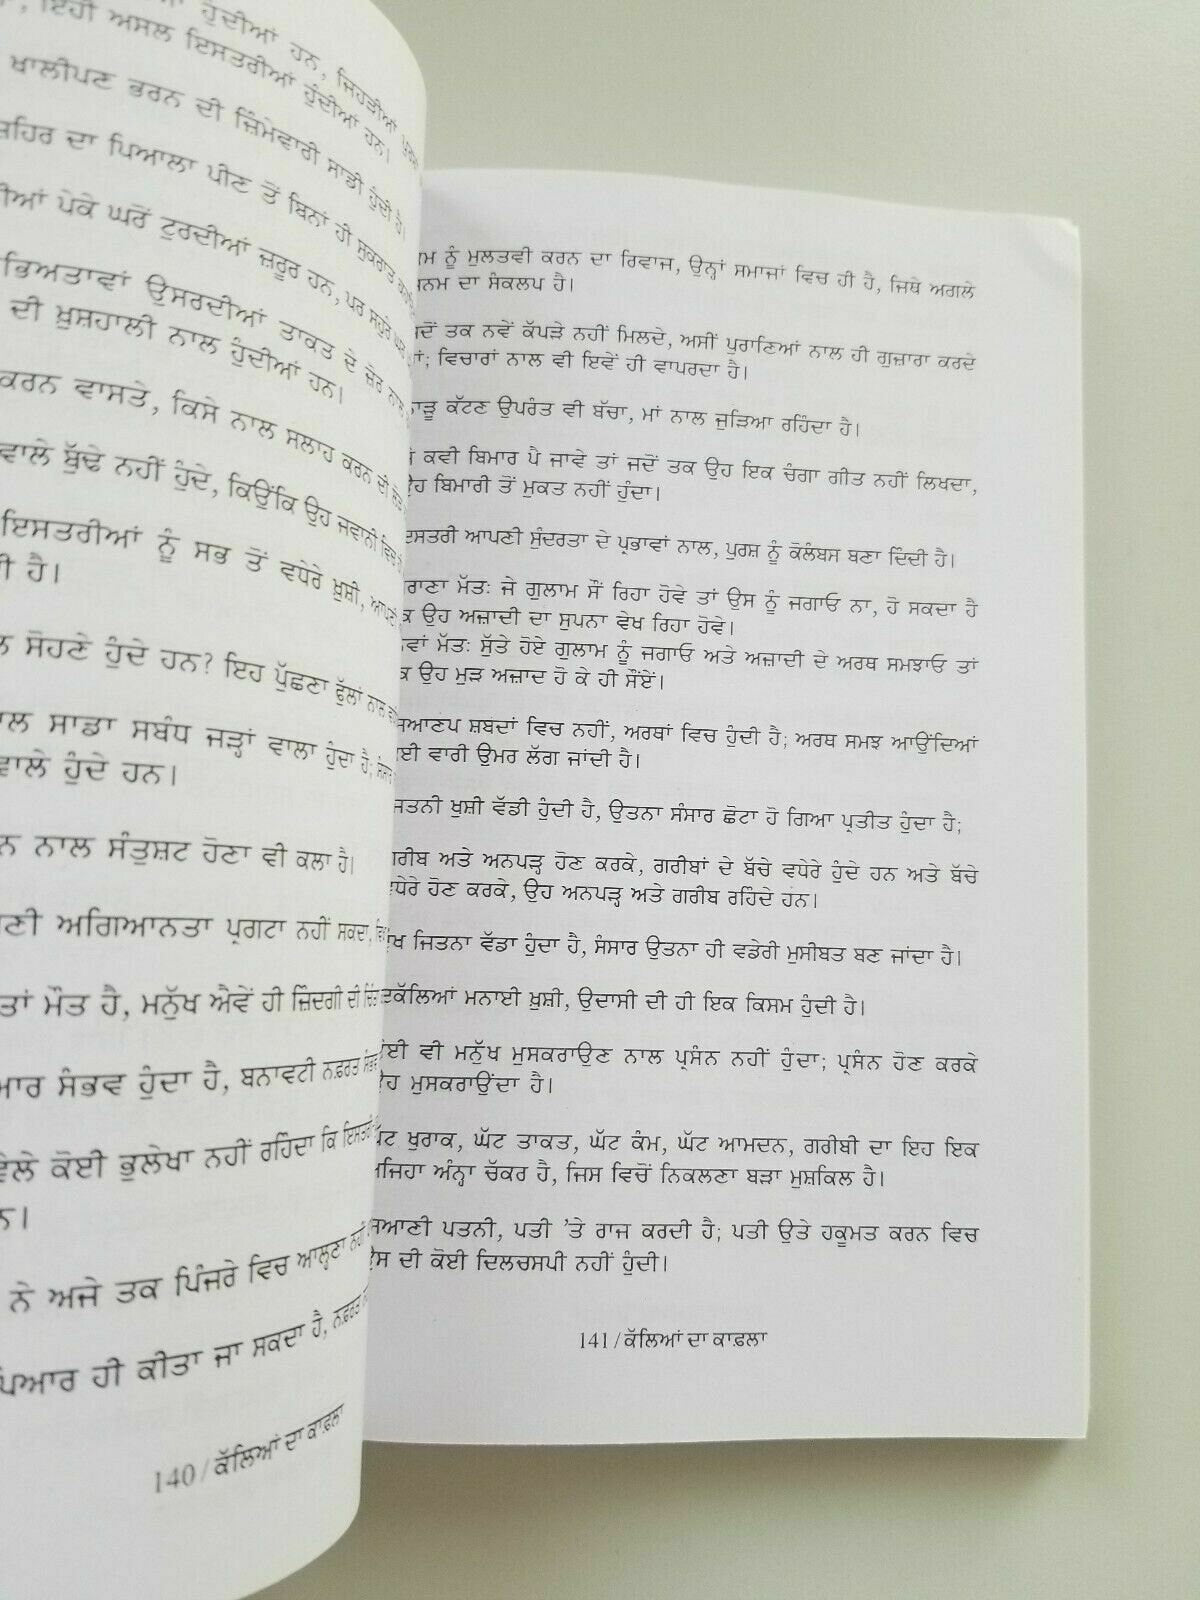 ਹੁੰਦੀਆਂ ਹਨ, ਜਿਹੜੀਆਂ
ਇਹੀ ਅਸਲ ਇਸਤਰੀਆਂ ਹੁੰਦੀਆਂ ਹਨ।
ਖਾਲੀਪਣ ਭਰਨ ਦੀ ਜ਼ਿੰਮੇਵਾਰੀ ਸਾਡੀ ਹੁੰਦੀ ਹੈ।
ਦਾ ਪਿਆਲਾ ਪੀਣ ਤੋਂ ਬਿਨਾਂ ਹੀ ਸੁਕਰਾਤ
ਪੇਕੇ ਘਰੋਂ ਟੁਰਦੀਆਂ ਜ਼ਰੂਰ ਹਨ, ਪਰ ਸਹੁਰੇ
ਉਸਰਦੀਆਂ ਤਾਕਤ ਦੇ ਜ਼ੋਰ ਨਾਲ,
ਦੀ ਖ਼ੁਸ਼ਹਾਲੀ ਨਾਲ ਹੁੰਦੀਆਂ ਹਨ।
ਕਰਨ ਵਾਸਤੇ, ਕਿਸੇ ਨਾਲ ਸਲਾਹ ਕਰਨ ਦੀ
ਵਾਲੇ ਬੁੱਢੇ ਨਹੀਂ ਹੁੰਦੇ, ਕਿਉਂਕਿ ਉਹ ਜਵਾਨੀ ਵਿਚ
ਇਸਤਰੀਆਂ ਨੂੰ ਸਭ ਤੋਂ ਵਧੇਰੇ ਖ਼ੁਸ਼ੀ,
ਹੈ।
ਸੋਹਣੇ ਹੁੰਦੇ ਹਨ? ਇਹ ਪੁੱਛਣਾ ਫੁੱਲਾਂ ਨਾਲ
ਸਾਡਾ ਸਬੰਧ ਜੜ੍ਹਾਂ ਵਾਲਾ ਹੁੰਦਾ ਹੈ;
ਵਾਲੇ ਹੁੰਦੇ ਹਨ।
ਨਾਲ ਸੰਤੁਸ਼ਟ ਹੋਣਾ ਵੀ ਕਲਾ ਹੈ।
ਅਗਿਆਨਤਾ ਪ੍ਰਗਟਾ ਨਹੀਂ ਸਕਦਾ,
ਤਾਂ ਮੌਤ ਹੈ, ਮਨੁੱਖ ਐਵੇਂ ਹੀ ਜ਼ਿੰਦਗੀ ਦੀ
ਸੰਭਵ ਹੁੰਦਾ ਹੈ, ਬਨਾਵਟੀ ਨਫ਼ਰਤ
ਕੋਈ ਭੁਲੇਖਾ ਨਹੀਂ ਰਹਿੰਦਾ ਕਿ
ਨੇ ਅਜੇ ਤਕ ਪਿੰਜਰੇ ਵਿਚ ਆਲ੍ਹਣਾ
ਪਿਆਰ ਹੀ ਕੀਤਾ ਜਾ ਸਕਦਾ ਹੈ, ਨਫ਼ਰਤ
140 / ਕੱਲਿਆਂ ਦਾ ਕਾਫ਼ਲਾ
ਨੂੰ ਮੁਲਤਵੀ ਕਰਨ ਦਾ ਰਿਵਾਜ, ਉਨ੍ਹਾਂ ਸਮਾਜਾਂ ਵਿਚ ਹੀ ਹੈ, ਜਿਥੇ ਅਗਲੇ
ਦਾ ਸੰਕਲਪ ਹੈ।
ਤਕ ਨਵੇਂ ਕੱਪੜੇ ਨਹੀਂ ਮਿਲਦੇ, ਅਸੀਂ ਪੁਰਾਣਿਆਂ ਨਾਲ ਹੀ ਗੁਜ਼ਾਰਾ ਕਰਦੇ
ਵਿਚਾਰਾਂ ਨਾਲ ਵੀ ਇਵੇਂ ਹੀ ਵਾਪਰਦਾ ਹੈ।
ਕੱਟਣ ਉਪਰੰਤ ਵੀ ਬੱਚਾ, ਮਾਂ ਨਾਲ ਜੁੜਿਆ ਰਹਿੰਦਾ ਹੈ।
ਕਵੀ ਬਿਮਾਰ ਪੈ ਜਾਵੇ ਤਾਂ ਜਦੋਂ ਤਕ ਉਹ ਇਕ ਚੰਗਾ ਗੀਤ ਨਹੀਂ ਲਿਖਦਾ,
ਬਿਮਾਰੀ ਤੋਂ ਮੁਕਤ ਨਹੀਂ ਹੁੰਦਾ।
ਇਸਤਰੀ ਆਪਣੀ ਸੁੰਦਰਤਾ ਦੇ ਪ੍ਰਭਾਵਾਂ ਨਾਲ, ਪੁਰਸ਼ ਨੂੰ ਕੋਲੰਬਸ ਬਣਾ ਦਿੰਦੀ ਹੈ।
ਮੱਤ: ਜੇ ਗੁਲਾਮ ਸੌਂ ਰਿਹਾ ਹੋਵੇ ਤਾਂ ਉਸ ਨੂੰ ਜਗਾਓ ਨਾ, ਹੋ ਸਕਦਾ ਹੈ
ਉਹ ਅਜ਼ਾਦੀ ਦਾ ਸੁਪਨਾ ਵੇਖ ਰਿਹਾ ਹੋਵੇ।
ਮੱਤ: ਸੁੱਤੇ ਹੋਏ ਗੁਲਾਮ ਨੂੰ ਜਗਾਓ ਅਤੇ ਅਜ਼ਾਦੀ ਦੇ ਅਰਥ ਸਮਝਾਓ ਤਾਂ
ਉਹ ਮੁੜ ਅਜ਼ਾਦ ਹੋ ਕੇ ਹੀ ਸੌਂਏਂ।
ਸ਼ਬਦਾਂ ਵਿਚ ਨਹੀਂ, ਅਰਥਾਂ ਵਿਚ ਹੁੰਦੀ ਹੈ; ਅਰਥ ਸਮਝ ਆਉਂਦਿਆਂ
ਵਾਰੀ ਉਮਰ ਲੱਗ ਜਾਂਦੀ ਹੈ।
ਖ਼ੁਸ਼ੀ ਵੱਡੀ ਹੁੰਦੀ ਹੈ, ਉਤਨਾ ਸੰਸਾਰ ਛੋਟਾ ਹੋ ਗਿਆ ਪ੍ਰਤੀਤ ਹੁੰਦਾ ਹੈ;
ਗਰੀਬ ਅਤੇ ਅਨਪੜ੍ਹ ਹੋਣ ਕਰਕੇ, ਗਰੀਬਾਂ ਦੇ ਬੱਚੇ ਵਧੇਰੇ ਹੁੰਦੇ ਹਨ ਅਤੇ ਬੱਚੇ
ਵਧੇਰੇ ਹੋਣ ਕਰਕੇ, ਉਹ ਅਨਪੜ੍ਹ ਅਤੇ ਗਰੀਬ ਰਹਿੰਦੇ ਹਨ।
ਜਿਤਨਾ ਵੱਡਾ ਹੁੰਦਾ ਹੈ, ਸੰਸਾਰ ਉਤਨਾ ਹੀ ਵਡੇਰੀ ਮੁਸੀਬਤ ਬਣ ਜਾਂਦਾ ਹੈ।
ਇਕੱਲਿਆਂ ਮਨਾਈ ਖ਼ੁਸ਼ੀ, ਉਦਾਸੀ ਦੀ ਹੀ ਇਕ ਕਿਸਮ ਹੁੰਦੀ ਹੈ।
ਵੀ ਮਨੁੱਖ ਮੁਸਕਰਾਉਣ ਨਾਲ ਪ੍ਰਸੰਨ ਨਹੀਂ ਹੁੰਦਾ; ਪ੍ਰਸੰਨ ਹੋਣ ਕਰਕੇ
ਮੁਸਕਰਾਉਂਦਾ ਹੈ।
ਘੱਟ ਖੁਰਾਕ, ਘੱਟ ਤਾਕਤ, ਘੱਟ ਕੰਮ, ਘੱਟ ਆਮਦਨ, ਗਰੀਬੀ ਦਾ ਇਹ ਇਕ
ਅਜਿਹਾ ਅੰਨ੍ਹਾ ਚੱਕਰ ਹੈ, ਜਿਸ ਵਿਚੋਂ ਨਿਕਲਣਾ ਬੜਾ ਮੁਸ਼ਕਿਲ ਹੈ।
ਸਿਆਣੀ ਪਤਨੀ, ਪਤੀ ’ਤੇ ਰਾਜ ਕਰਦੀ ਹੈ; ਪਤੀ ਉਤੇ ਹਕੂਮਤ ਕਰਨ ਵਿਚ
ਉਸ ਦੀ ਕੋਈ ਦਿਲਚਸਪੀ ਨਹੀਂ ਹੁੰਦੀ।
141 / ਕੱਲਿਆਂ ਦਾ ਕਾਫ਼ਲਾ